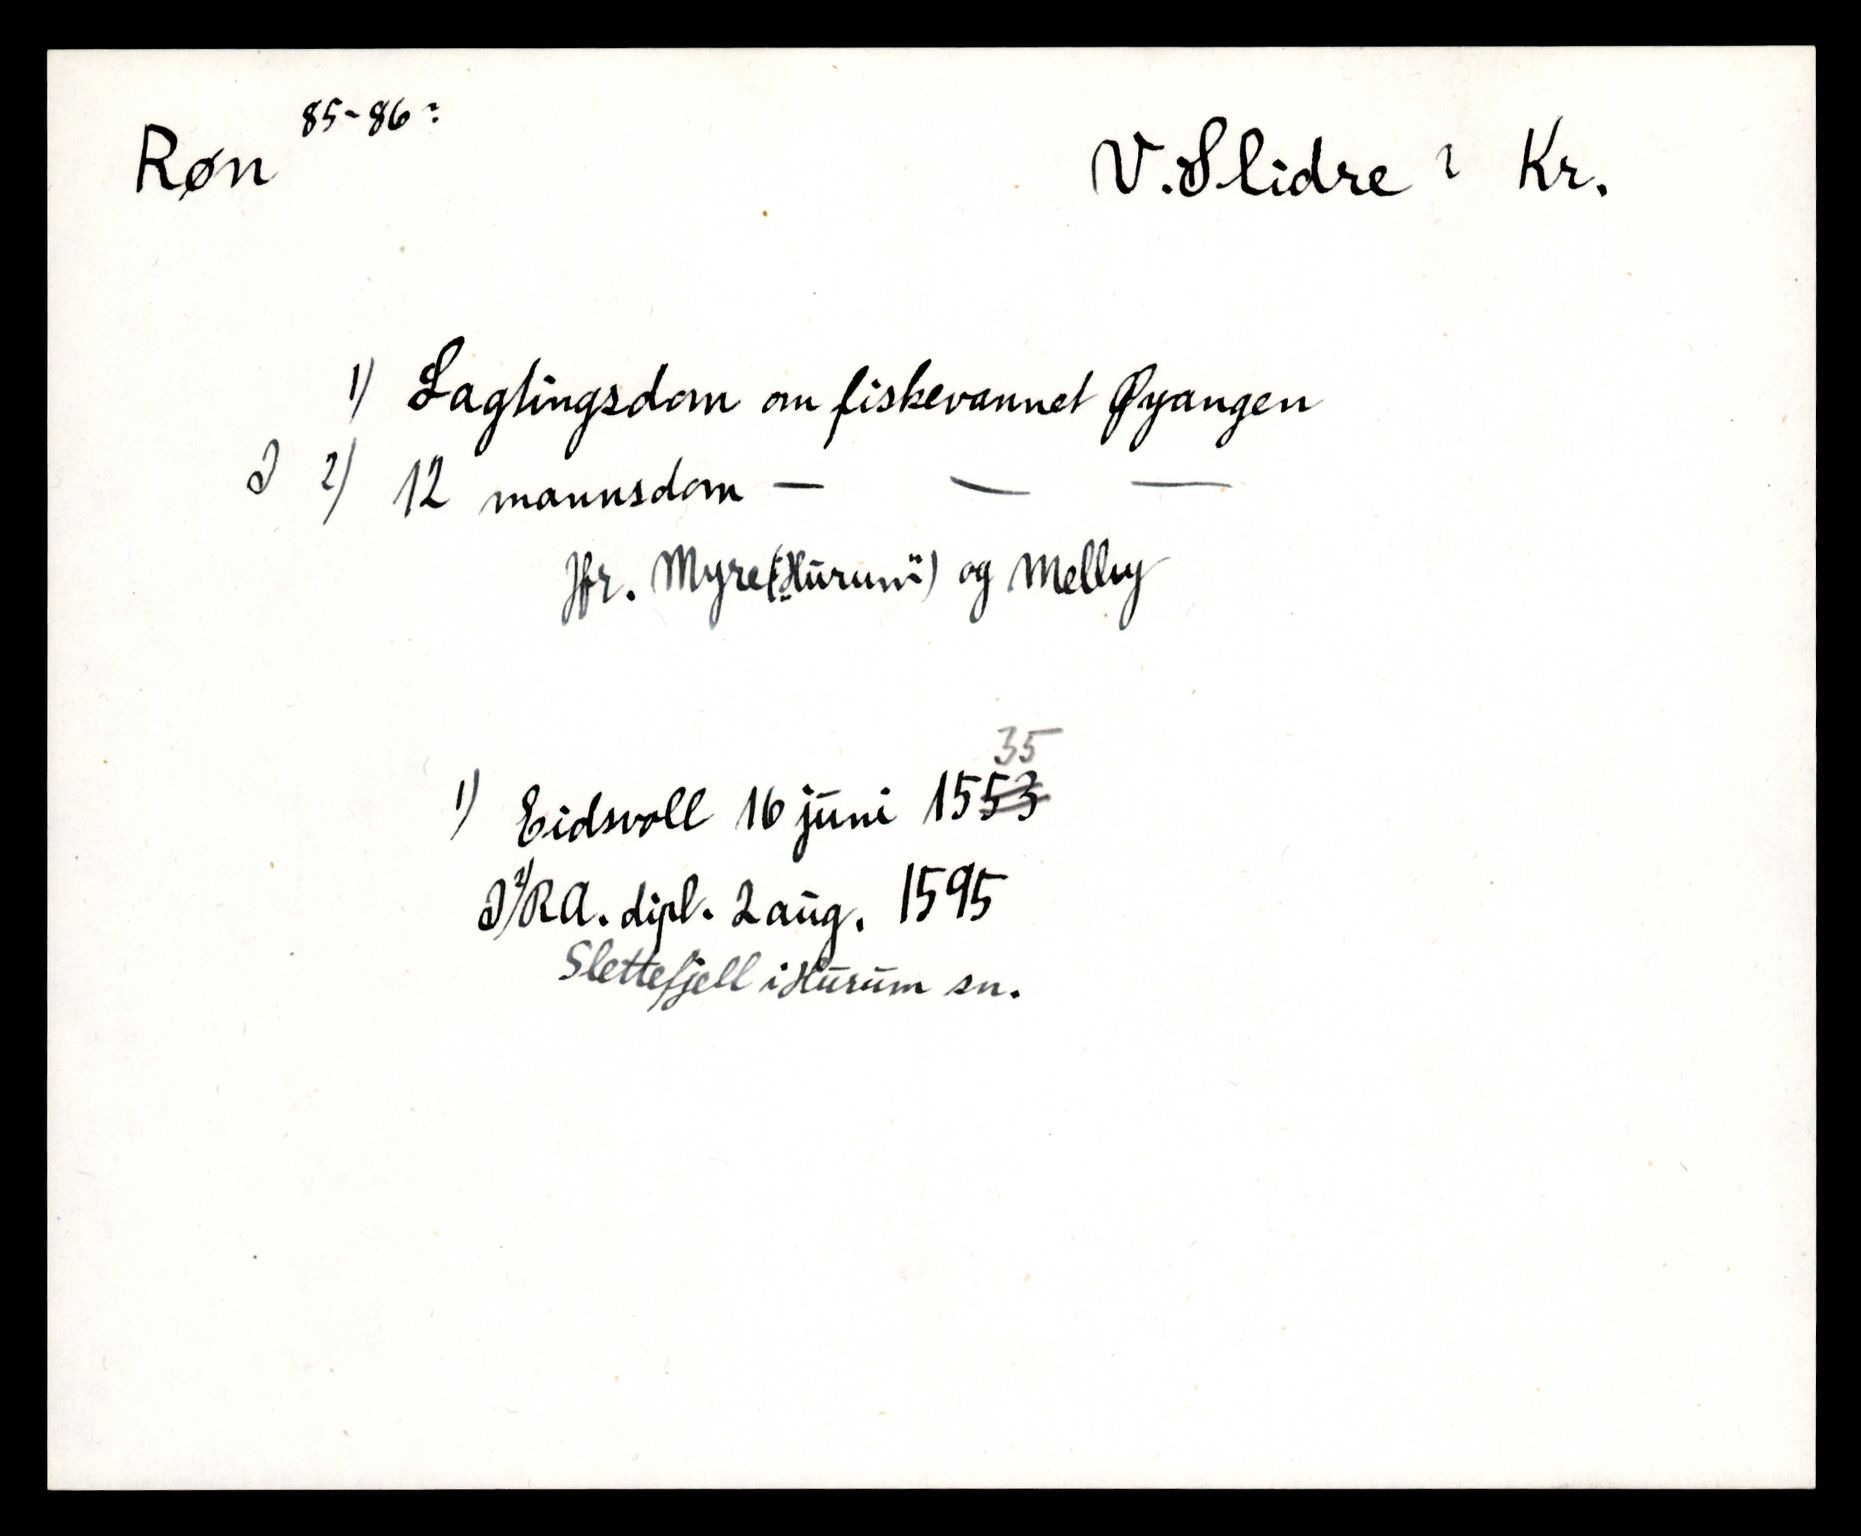 Røn 85-86? V. Slidre ? Kr.
1) Lagtingsdom om fiskevannet Øyangen
2) 12 mannsdom — — —
Jfr. Myre (Hurum) og Melby
1) Eidsvoll 16 juni 1553 35
2) RA. dipl. 2 aug. 1595
Slettefjell i Hurum sn.